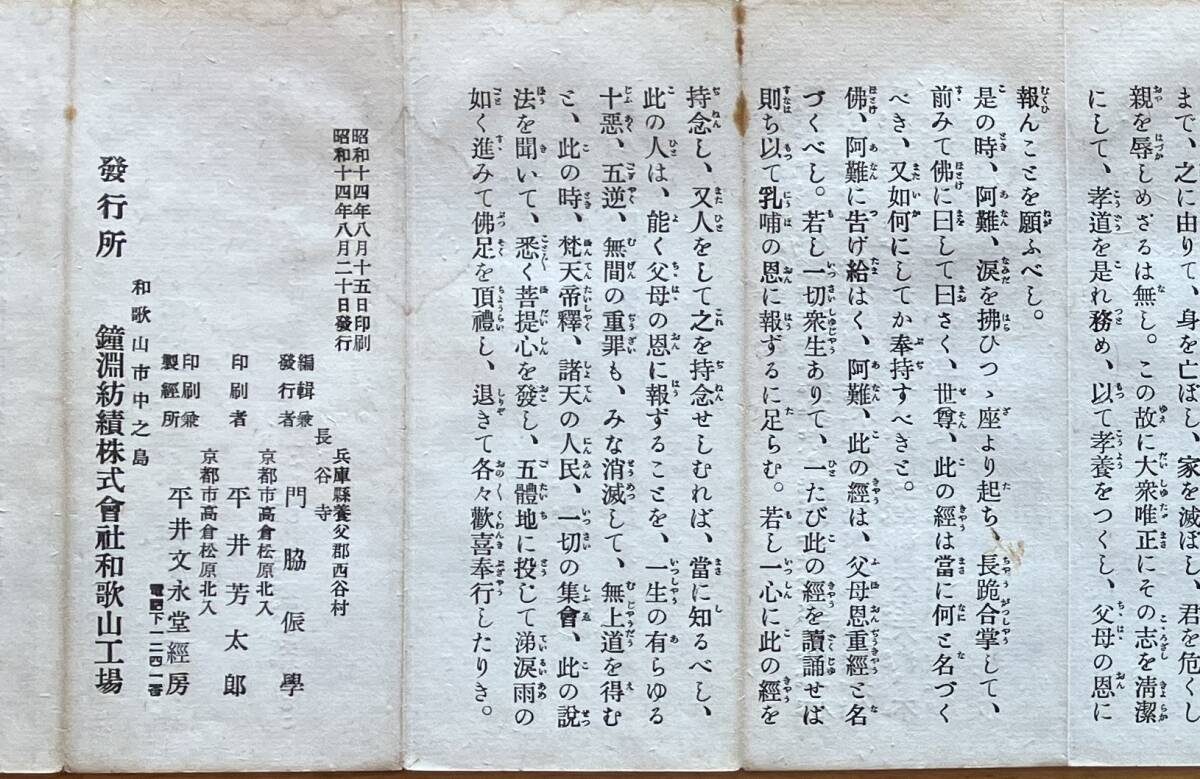 まで、之に由りて、身を亡ぼし、家を滅ぼし、君を危くし
親を辱しめざるは無し。この故に大衆唯正にその志を清潔
にして、孝道を是れ務め、以て孝養をつくし、父母の恩に
報んことを願ふべし。
是の時、阿難、涙を拂ひつゝ座より起ち、長跪合掌して、
前みて佛に曰して曰さく、世尊、此の經は當に何と名づく
べき、又如何にしてか奉持すべきと。
佛、阿難に告げ給はく、阿難、此の經は、父母恩重經と名
づくべし。若し一切衆生ありて、一たび此の經を讀誦せば
則ち以て乳哺の恩に報ずるに足らむ。若し一心に此の經を
持念し、又人をして之を持念せしむれば、當に知るべし、
此の人は、能く父母の恩に報ずることを、一生の有らゆる
十惡、五逆、無間の重罪も、みな消滅して、無上道を得む
と、此の時、梵天帝釋、諸天の人民、一切の集會、此の說
法を聞いて、悉く菩提心を發し、五體地に投じて涕涙雨の
如く進みて佛足を頂禮し、退きて各々歡喜奉行したりき。
昭和十四年八月十五日印刷
昭和十四年八月二十日發行
兵庫縣養父郡西谷村
長谷寺
編輯兼發行者 門脇侲學
京都市高倉松原北入
印刷者 平井芳太郎
京都市高倉松原北入
印刷兼製經所 平井文永堂經房
電話下一二四一番
和歌山市中之島
發行所 鐘淵紡績株式會社和歌山工場